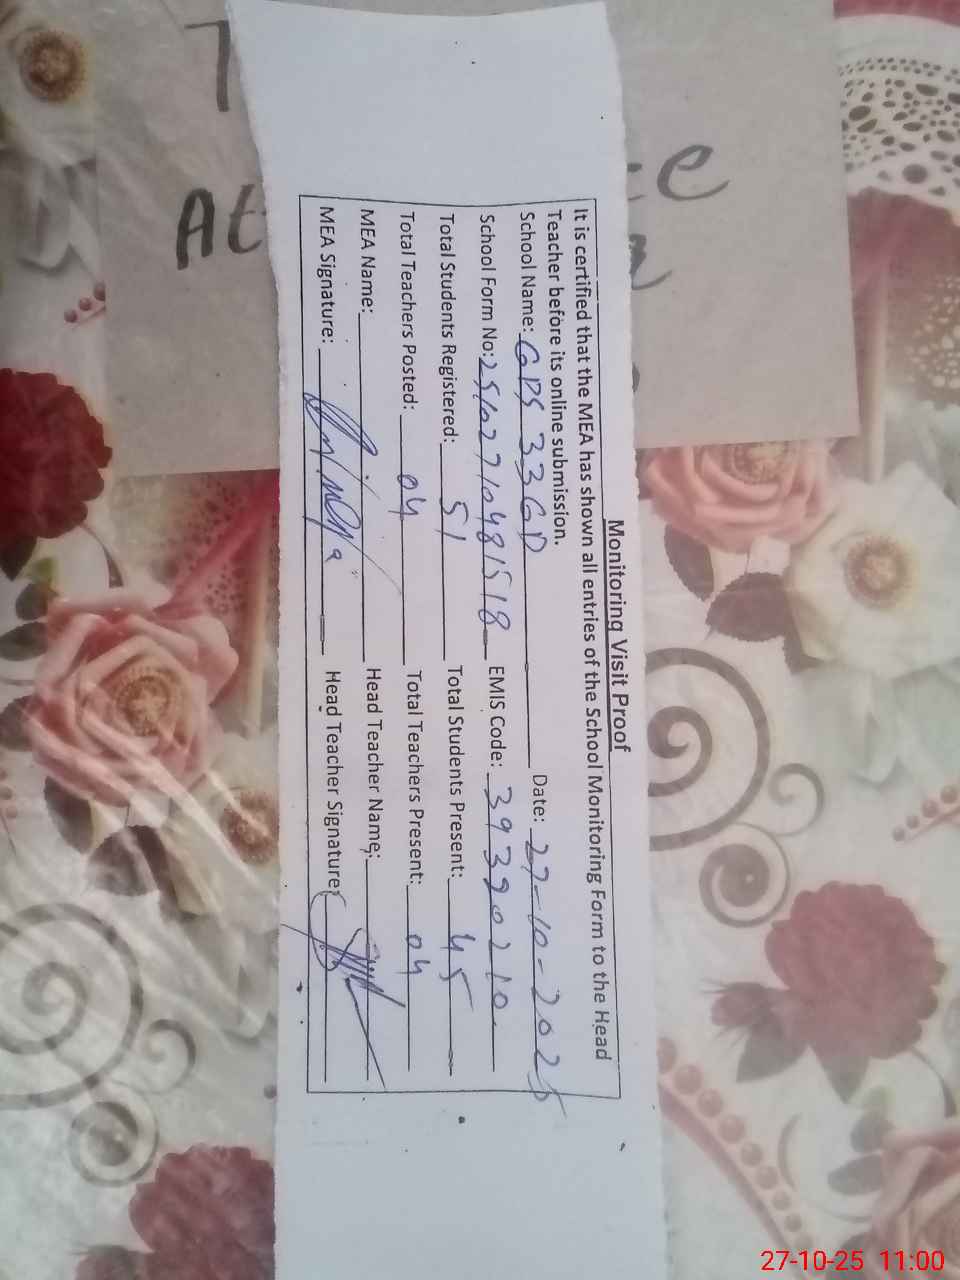 Monitoring Visit Proof
It is certified that the MEA has shown all entries of the School Monitoring Form to the Head
Teacher before its online submission.
School Name: GPS 33GD Date: 27-10-2025
School Form No: 25102710481518 EMIS Code: 39390210
Total Students Registered: 51 Total Students Present: 45
Total Teachers Posted: 04 Total Teachers Present: 04
MEA Name: Head Teacher Name:
MEA Signature: Head Teacher Signature:
27-10-25 11:00